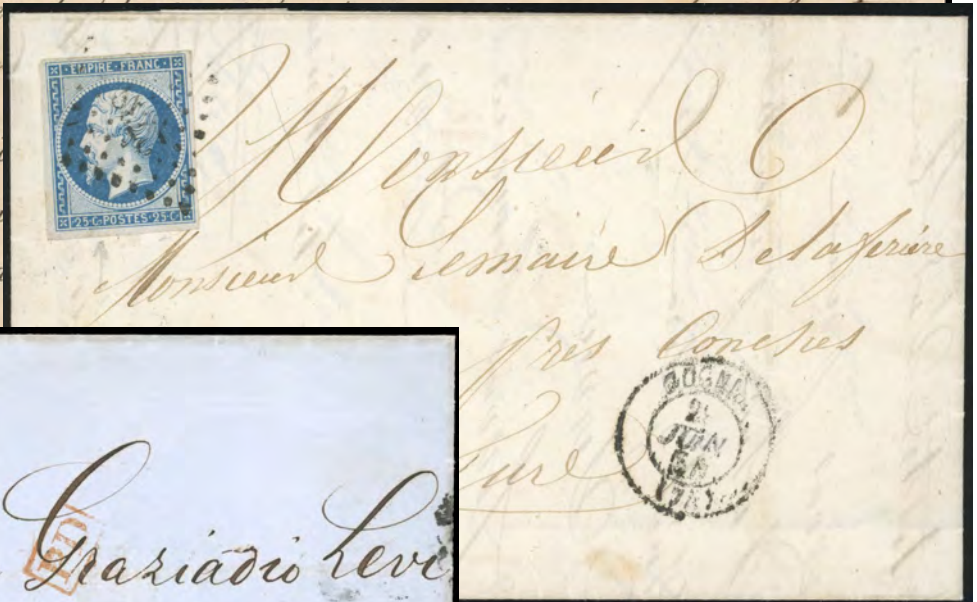 EMPIRE·FRANC·
25·C·POSTES·25·C·
Monsieur
Monsieur Lemaire Delaferière
près Conches
Eure
JUIN
PD
Graziadio Levi